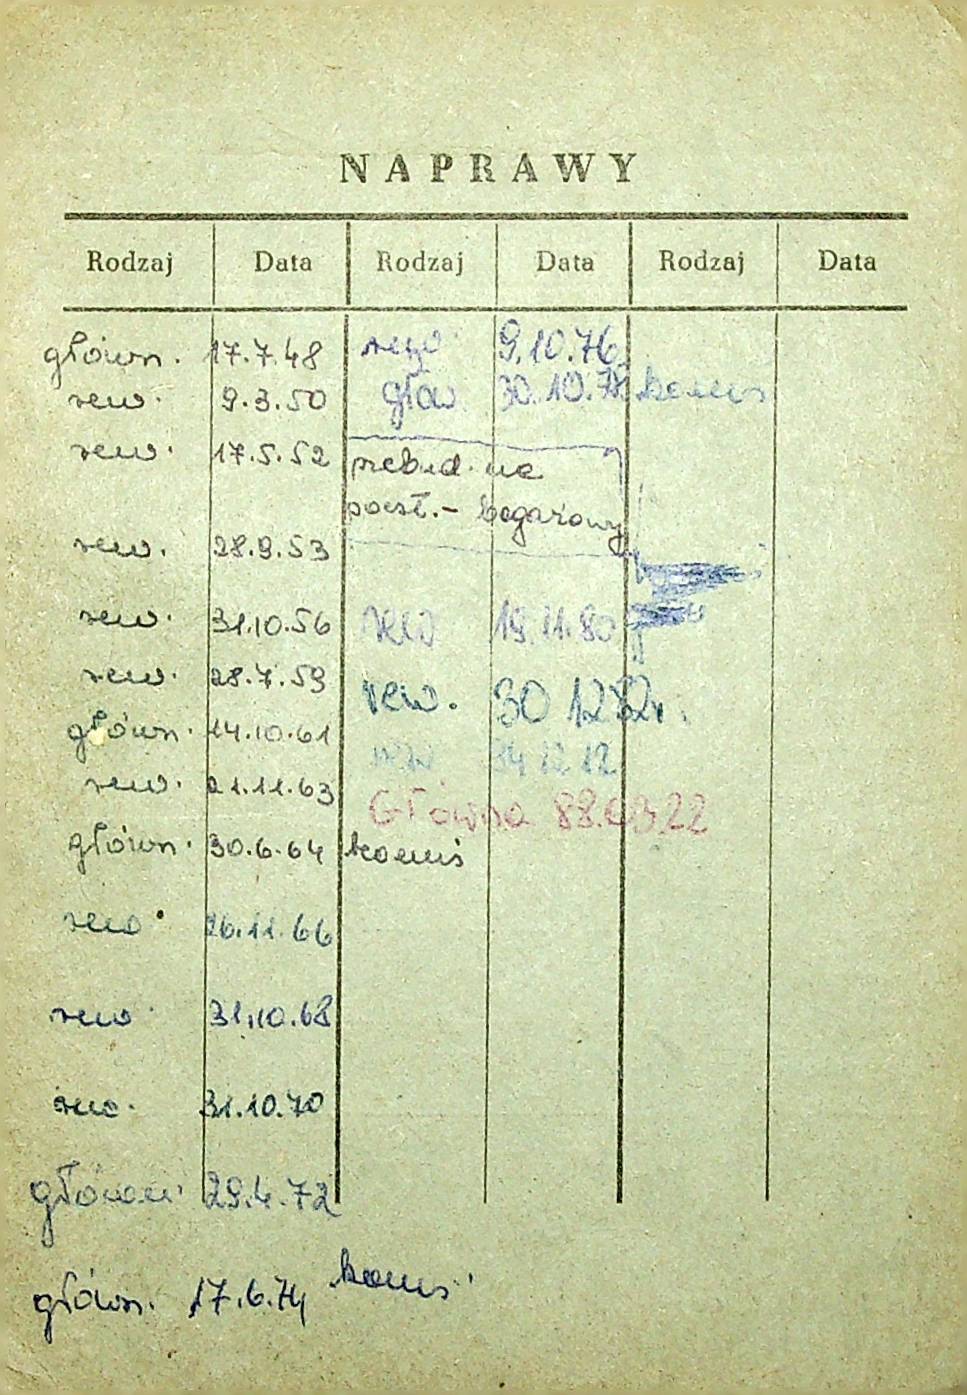 NAPRAWY
Rodzaj Data Rodzaj Data Rodzaj Data
główn. 17.7.48
rew. 9.3.50
rew. 17.5.52
rew. 28.9.53
rew. 31.10.56
rew. 28.7.59
główn. 14.10.61
rew. 21.11.63
główn. 30.6.64
rew. 26.11.66
rew. 31.10.68
rew. 31.10.70
29.4.72
główn. 17.6.74
9.10.76
głow 30.10.78
na
poczt.- bagażowy
rew 19.11.80
rew. 30 12 82r.
rew 84 12 12
Główna 88.03.22